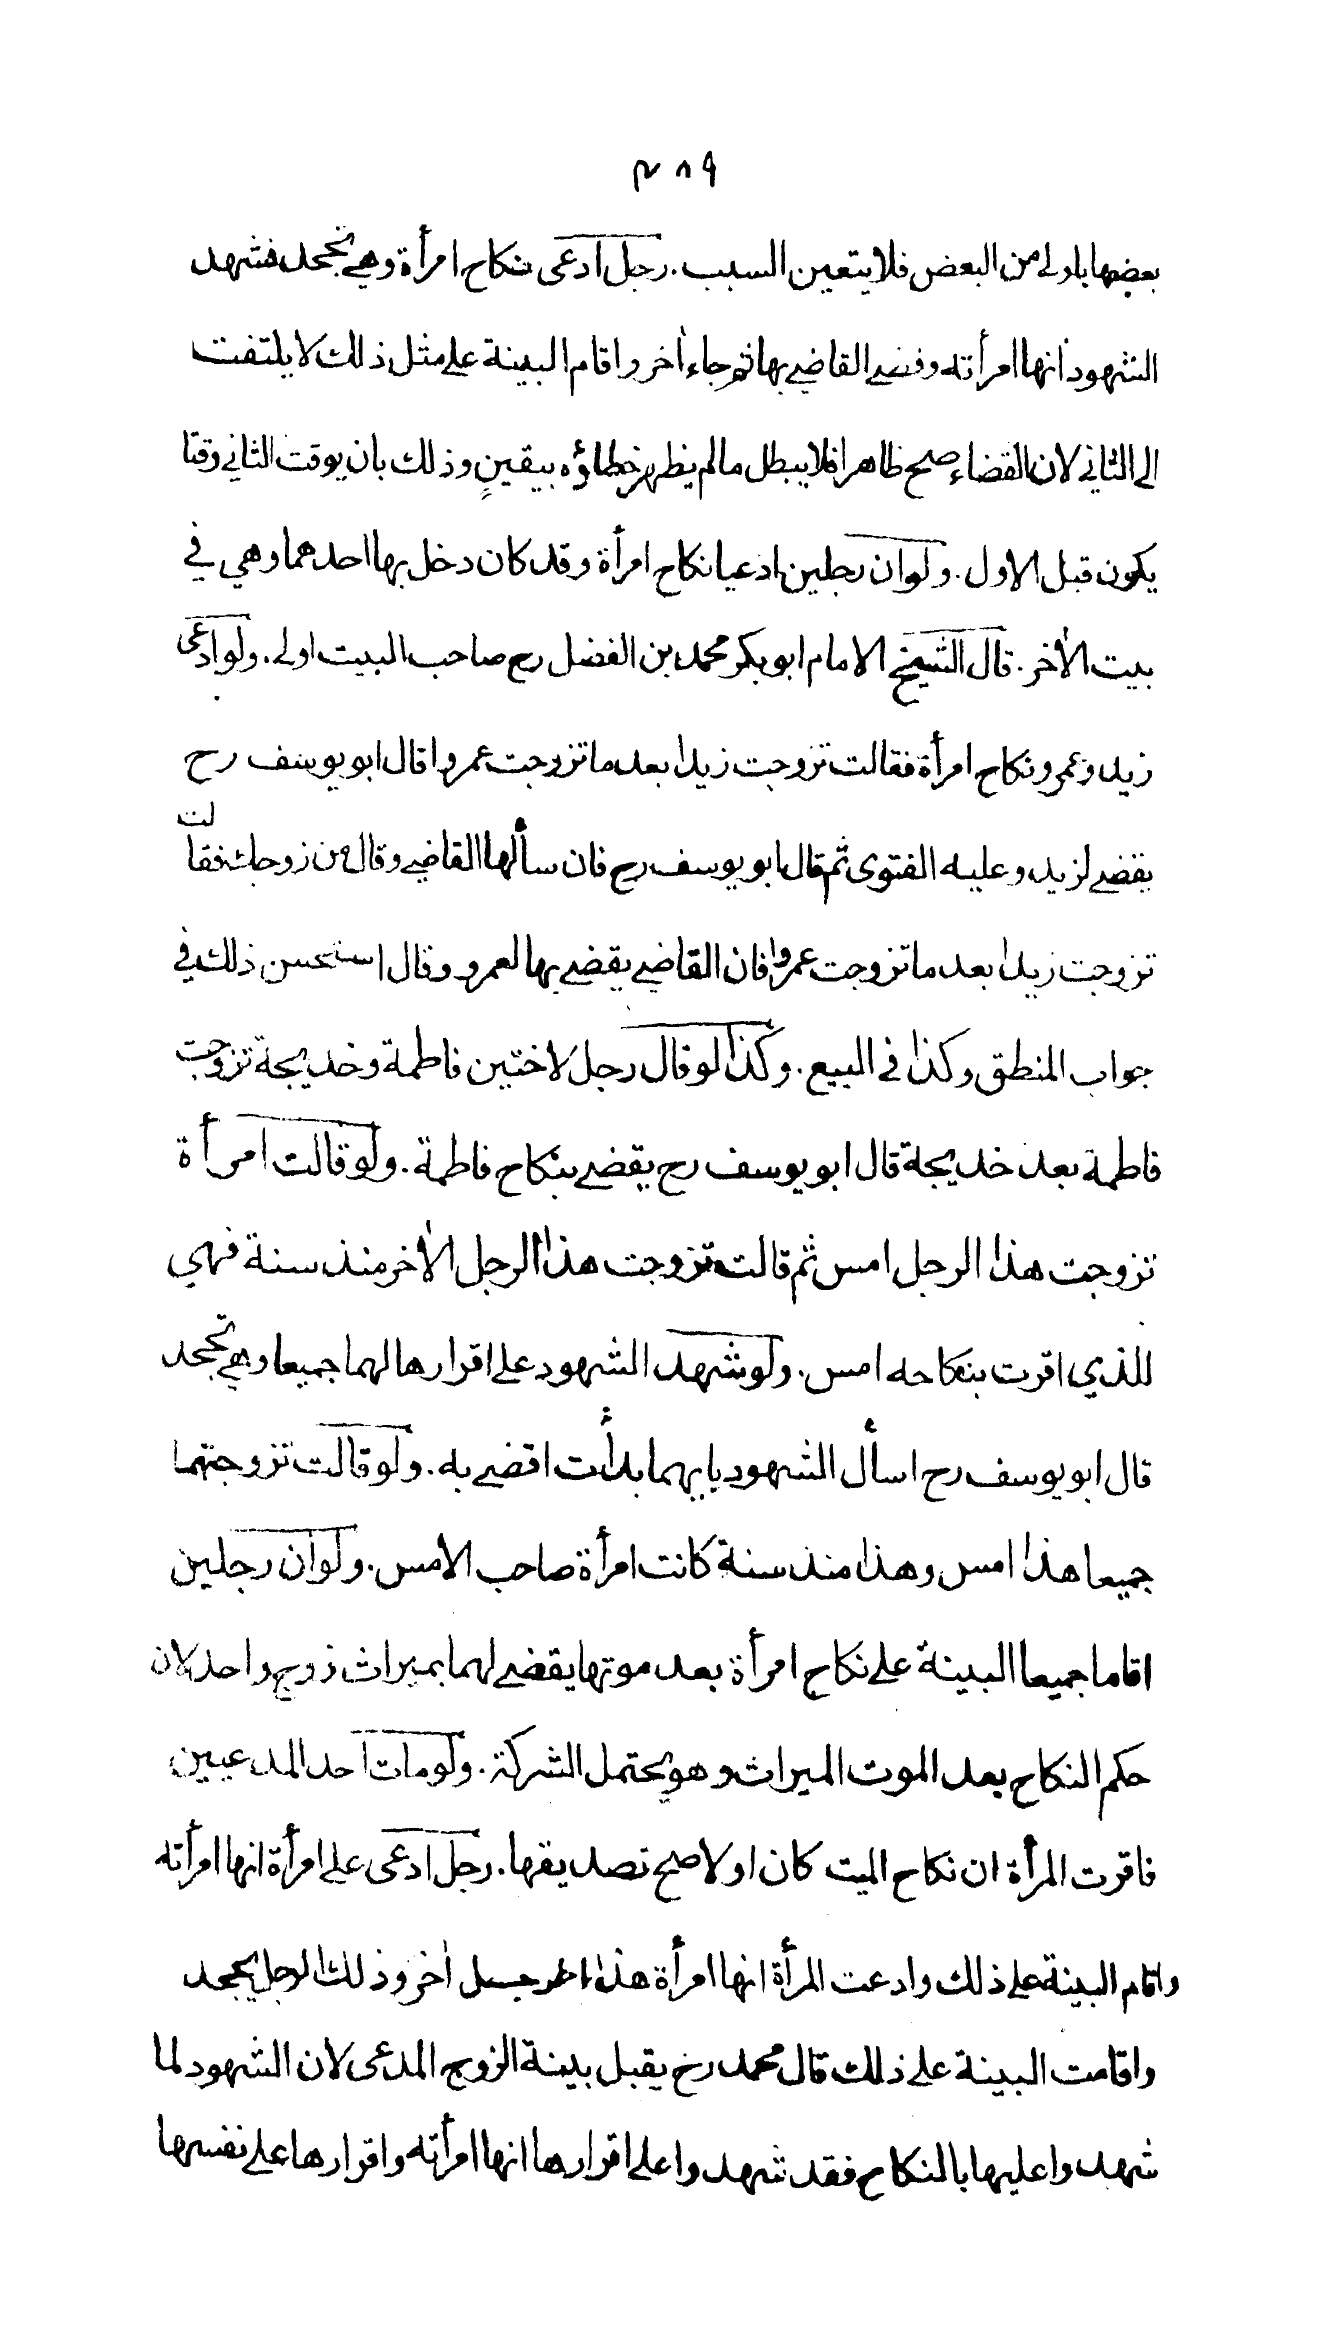 ٢٨٩
بعضها باولى من البعض فلا يتعين السبب . رجل ادعى نكاح امرأة وهي تجحد فشهد
الشهود انها امرأته وقضى القاضي بها ثم جاء اٰخر واقام البينة على مثل ذلك لا يلتفت
الى الثاني لان القضاء صح ظاهرا فلا يبطل ما لم يظهر خطاؤه بيقينٍ وذلك بان يوقت الثاني وقتا
يكون قبل الاول . ولو ان رجلين ادعيا نكاح امرأة وقد كان دخل بها احدهما وهي في
بيت الاٰخر . قال الشيخ الامام ابو بكر محمد بن الفضل رح صاحب البيت اولى . ولو ادعى
زيد وعمرو نكاح امرأة فقالت تزوجت زيدا بعد ما تزوجت عمروا قال ابو يوسف رح
يقضى لزيد وعليه الفتوى ثم قال ابو يوسف رح فان سألها القاضي وقال من زوجك فقالت
تزوجت زيدا بعد ما تزوجت عمروا فان القاضي يقضى بها لعمرو وقال استحسن ذلك في
جواب المنطق وكذا في البيع . وكذا لو قال رجل لاختين فاطمة وخديجة تزوجت
فاطمة بعد خديجة قال ابو يوسف رح يقضى بنكاح فاطمة . ولو قالت امرأة
تزوجت هذا الرجل امس ثم قالت تزوجت هذا الرجل الاٰخر منذ سنة فهي
للذي اقرت بنكاحه امس . ولو شهد الشهود على اقرارها لهما جميعا وهي تجحد
قال ابو يوسف رح اسأل الشهود بايهما بدأت اقضى به . ولو قالت تزوجتهما
جميعا هذا امس وهذا منذ سنة كانت امرأة صاحب الامس . ولو ان رجلين
اقاما جميعا البينة على نكاح امرأة بعد موتها يقضى لهما بميراث زوج واحد لان
حكم النكاح بعد الموت الميراث وهو يحتمل الشركة . ولو مات احد المدعيين
فاقرت المرأة ان نكاح الميت كان اولا صح تصديقها . رجل ادعى على امرأة انها امرأته
واقام البينة على ذلك وادعت المرأة انها امرأة هذا لرجل اٰخر وذلك الرجل يجحد
واقامت البينة على ذلك قال محمد رح يقبل بينة الزوج المدعى لان الشهود لما
شهدوا عليها بالنكاح فقد شهدوا على اقرارها انها امرأته واقرارها على نفسها